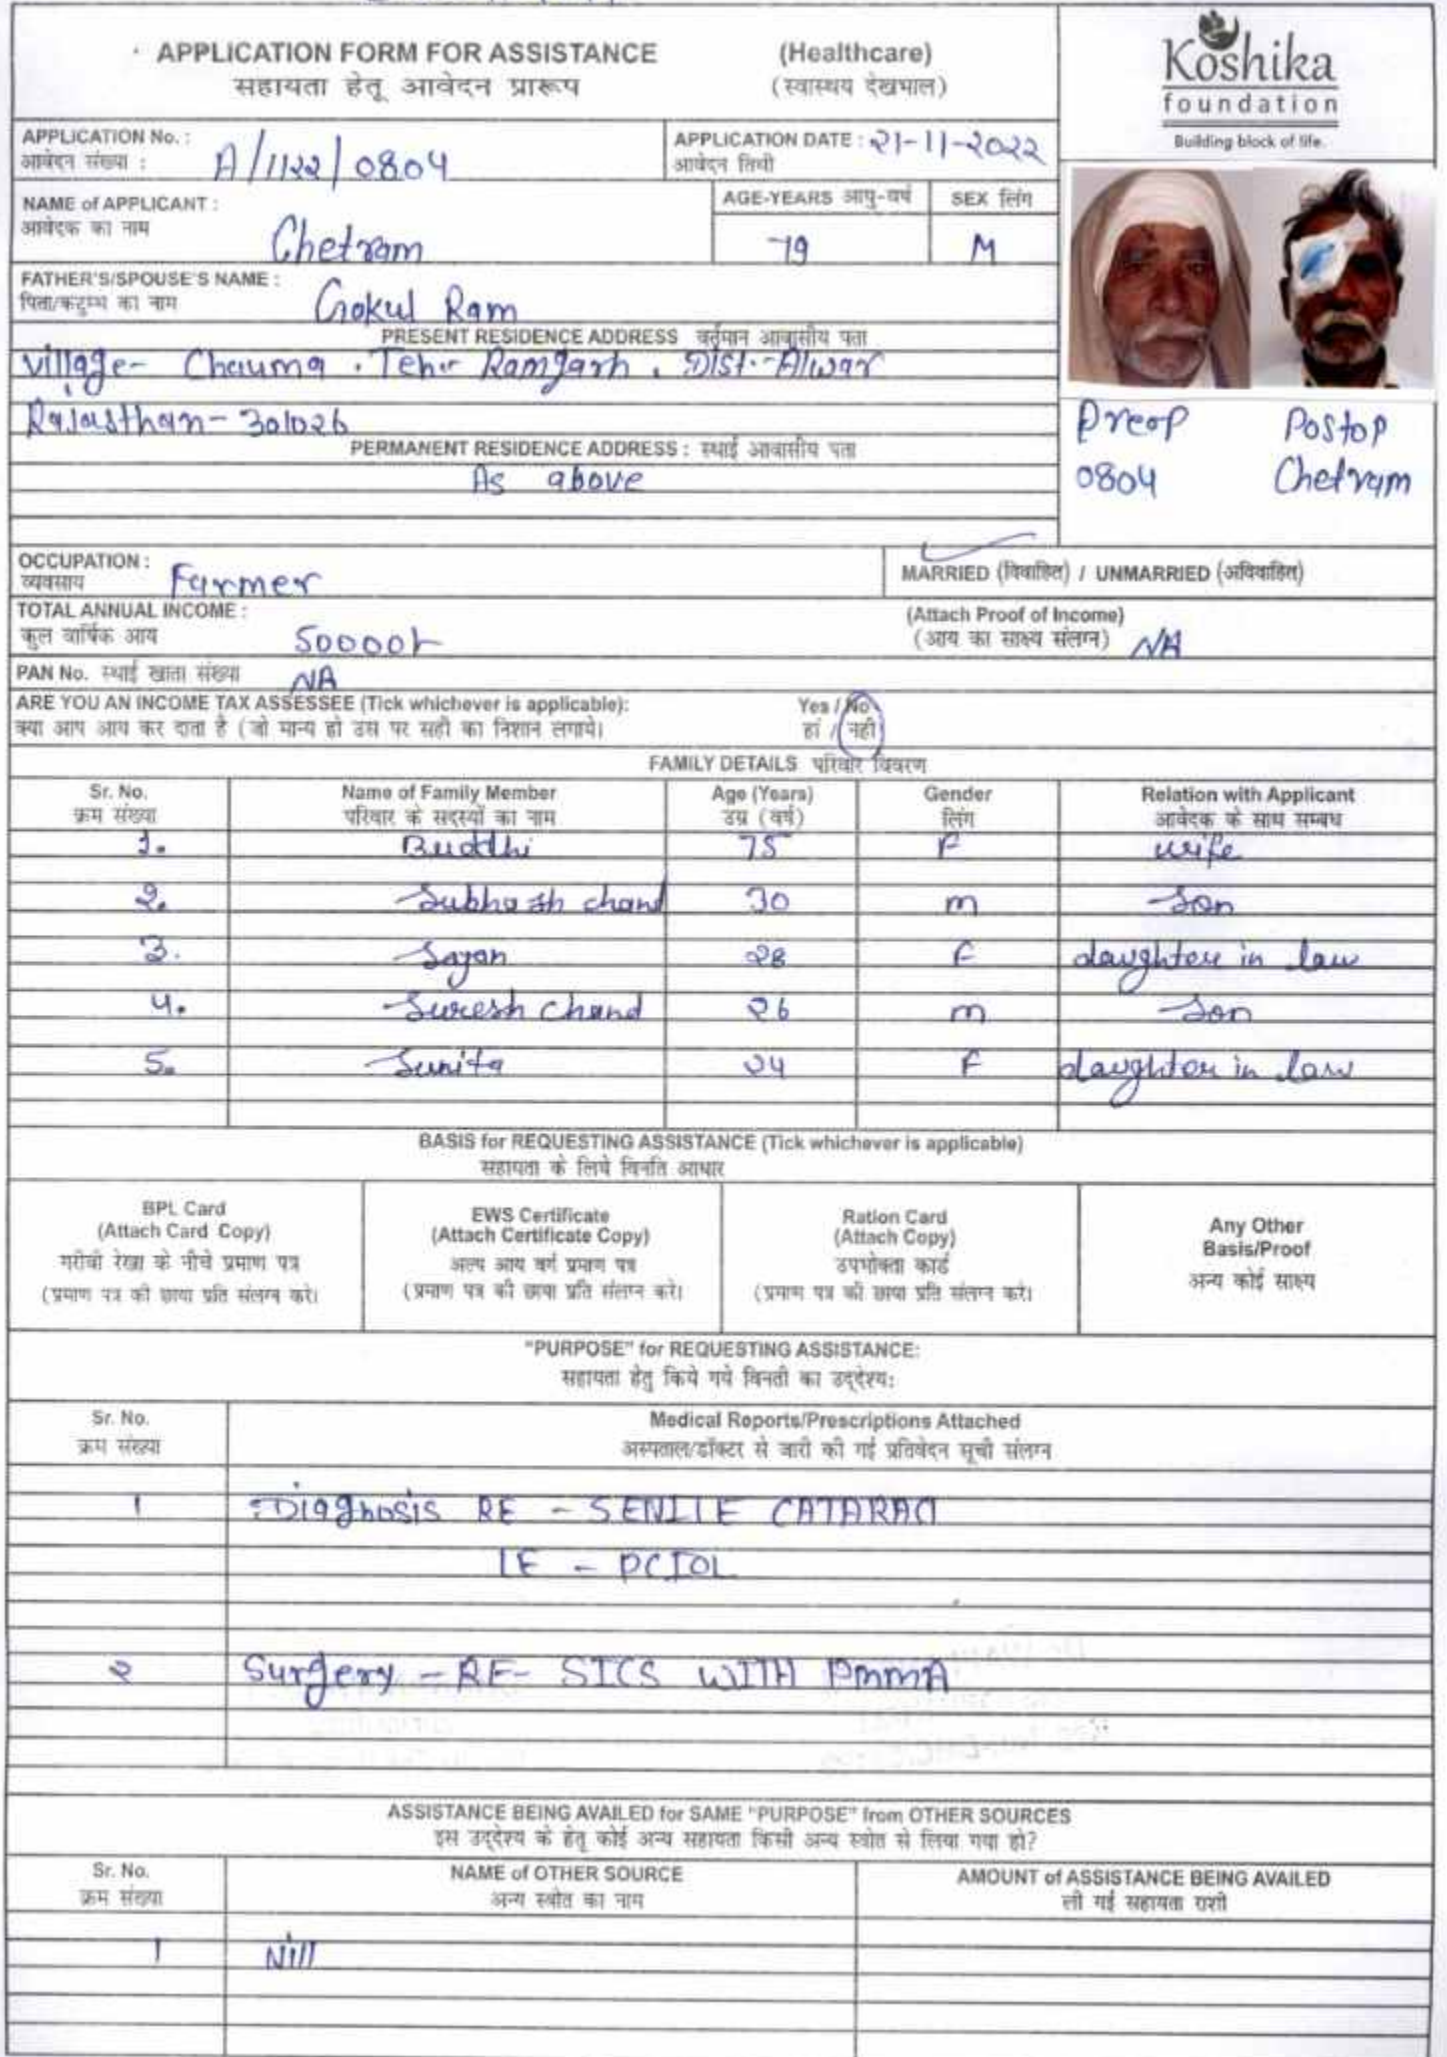 APPLICATION FORM FOR ASSISTANCE (Healthcare)
सहायता हेतू आवेदन प्रारूप (स्वास्थय देखभाल)
Koshika
foundation
Building block of life.
APPLICATION No. : A/1122/0804
आवेदन संख्या :
APPLICATION DATE : 21-11-2022
आवेदन तिथी
NAME of APPLICANT : Chetram
आवेदक का नाम
AGE-YEARS आयु-वर्ष 79
SEX लिंग M
FATHER'S/SPOUSE'S NAME : Gokul Ram
पिता/कटुम्भ का नाम
PRESENT RESIDENCE ADDRESS वर्तमान आवासीय पता
Village- Chauma . Teh- Ramgarh . Dist.-Alwar
Rajasthan- 301026
PERMANENT RESIDENCE ADDRESS : स्थाई आवासीय पता
As above
Preop Postop
0804 Chetram
OCCUPATION : Farmer
व्यवसाय
MARRIED (विवाहित) / UNMARRIED (अविवाहित)
TOTAL ANNUAL INCOME : 50000/-
कुल वार्षिक आय
(Attach Proof of Income)
(आय का साक्ष्य संलग्न) NA
PAN No. स्थाई खाता संख्या NA
ARE YOU AN INCOME TAX ASSESSEE (Tick whichever is applicable): Yes / No
क्या आप आय कर दाता है (जो मान्य हो उस पर सही का निशान लगाये। हां / नही
FAMILY DETAILS परिवार विवरण
Sr. No. Name of Family Member Age (Years) Gender Relation with Applicant
क्रम संख्या परिवार के सदस्यों का नाम उम्र (वर्ष) लिंग आवेदक के साथ सम्बध
1. Buddhi 75 F wife
2. Subhash chand 30 m Son
3. Sajan 28 F daughter in law
4. Suresh chand 26 m Son
5. Sunita 24 F daughter in law
BASIS for REQUESTING ASSISTANCE (Tick whichever is applicable)
सहायता के लिये विनति आधार
BPL Card
(Attach Card Copy)
गरीबी रेखा के नीचे प्रमाण पत्र
(प्रमाण पत्र की छाया प्रति संलग्न करे।
EWS Certificate
(Attach Certificate Copy)
अल्प आय वर्ग प्रमाण पत्र
(प्रमाण पत्र की छाया प्रति संलग्न करे।
Ration Card
(Attach Copy)
उपभोक्ता कार्ड
(प्रमाण पत्र की छाया प्रति संलग्न करे।
Any Other
Basis/Proof
अन्य कोई साक्ष्य
"PURPOSE" for REQUESTING ASSISTANCE:
सहायता हेतु किये गये विनती का उद्देश्य:
Sr. No. Medical Reports/Prescriptions Attached
क्रम संख्या अस्पताल/डॉक्टर से जारी की गई प्रतिवेदन सूची संलग्न
1 Diagnosis RE - SENILE CATARACT
LE - PCIOL
2 Surgery - RE- SICS WITH PMMA
ASSISTANCE BEING AVAILED for SAME "PURPOSE" from OTHER SOURCES
इस उद्देश्य के हेतू कोई अन्य सहायता किसी अन्य स्त्रोत से लिया गया हो?
Sr. No. NAME of OTHER SOURCE AMOUNT of ASSISTANCE BEING AVAILED
क्रम संख्या अन्य स्त्रोत का नाम ली गई सहायता राशी
1 Nill